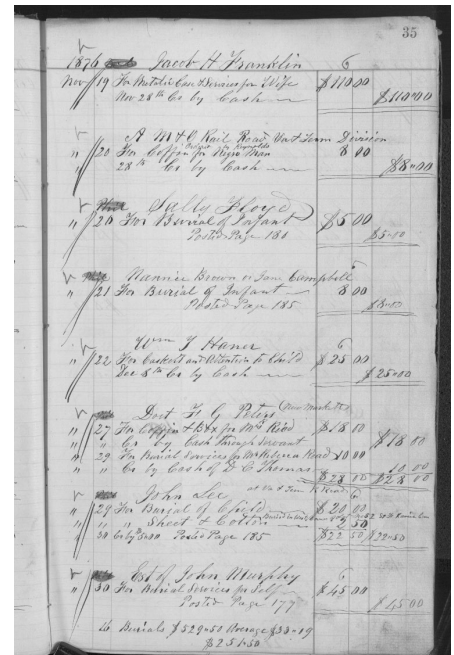 35
1876 Jacob H Franklin
Nov 19 For Metalic Case & Services for Wife $110 00
Nov 28th Cr by Cash $110=00
A M & O Rail Road Va & Tenn Division
" 20 For Coffin for Negro Man 8 00
" 28th Cr by Cash $8=00
Sally Floyd
" 20 For Burial of Infant $5 00
Posted Page 180 $5=00
Nannie Brown or Jane Campbell
" 21 For Burial of Infant 8 00
Posted Page 185 $8=00
Wm J Haner
" 22 For Caskett and Attention to Child $25 00
Dec 8th Cr by Cash $25=00
Doct F G Peters (New Market)
" 27 For Coffin & Box for Mrs Read $18 00
" " Cr by Cash through Servant $18 00
" 29 For Burial Services for Mrs Rebecca Read 10 00
" " Cr by Cash of D C Thomas 10 00
$28 00 $28 00
John Lee at Va & Tenn R Road
" 29 For Burial of Child $20 00
" " " Sheet & Cotton 2 50
" 30 Cr by Posted Page 185 $22 50 $22=50
Est of John Murphy
" 30 For Burial Services for Self $45 00
Posted Page 177 $45 00
16 Burials $529=50 Average $33=09
$251=50